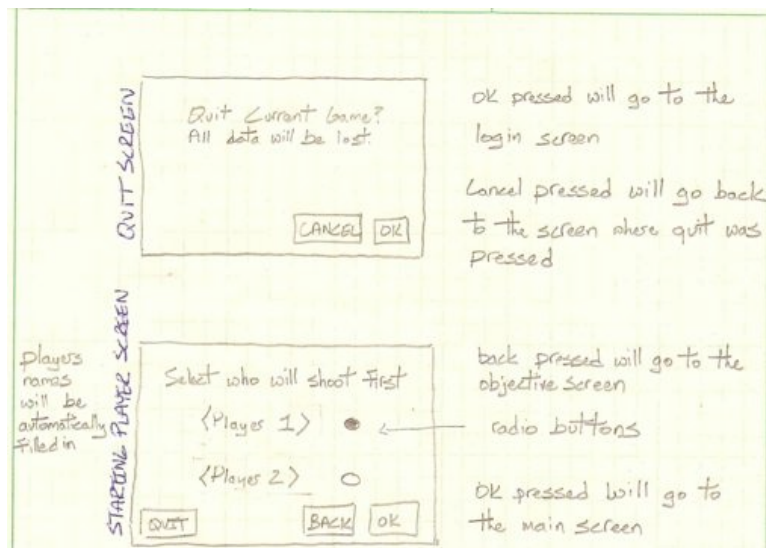 QUIT SCREEN
Quit Current Game?
All data will be lost.
CANCEL OK
OK pressed will go to the
login screen
Cancel pressed will go back
to the screen where quit was
pressed
STARTING PLAYER SCREEN
players
names
will be
automatically
filled in
Select who will shoot First
<Player 1>
<Player 2>
QUIT BACK OK
back pressed will go to the
objective screen
radio buttons
OK pressed will go to
the main screen